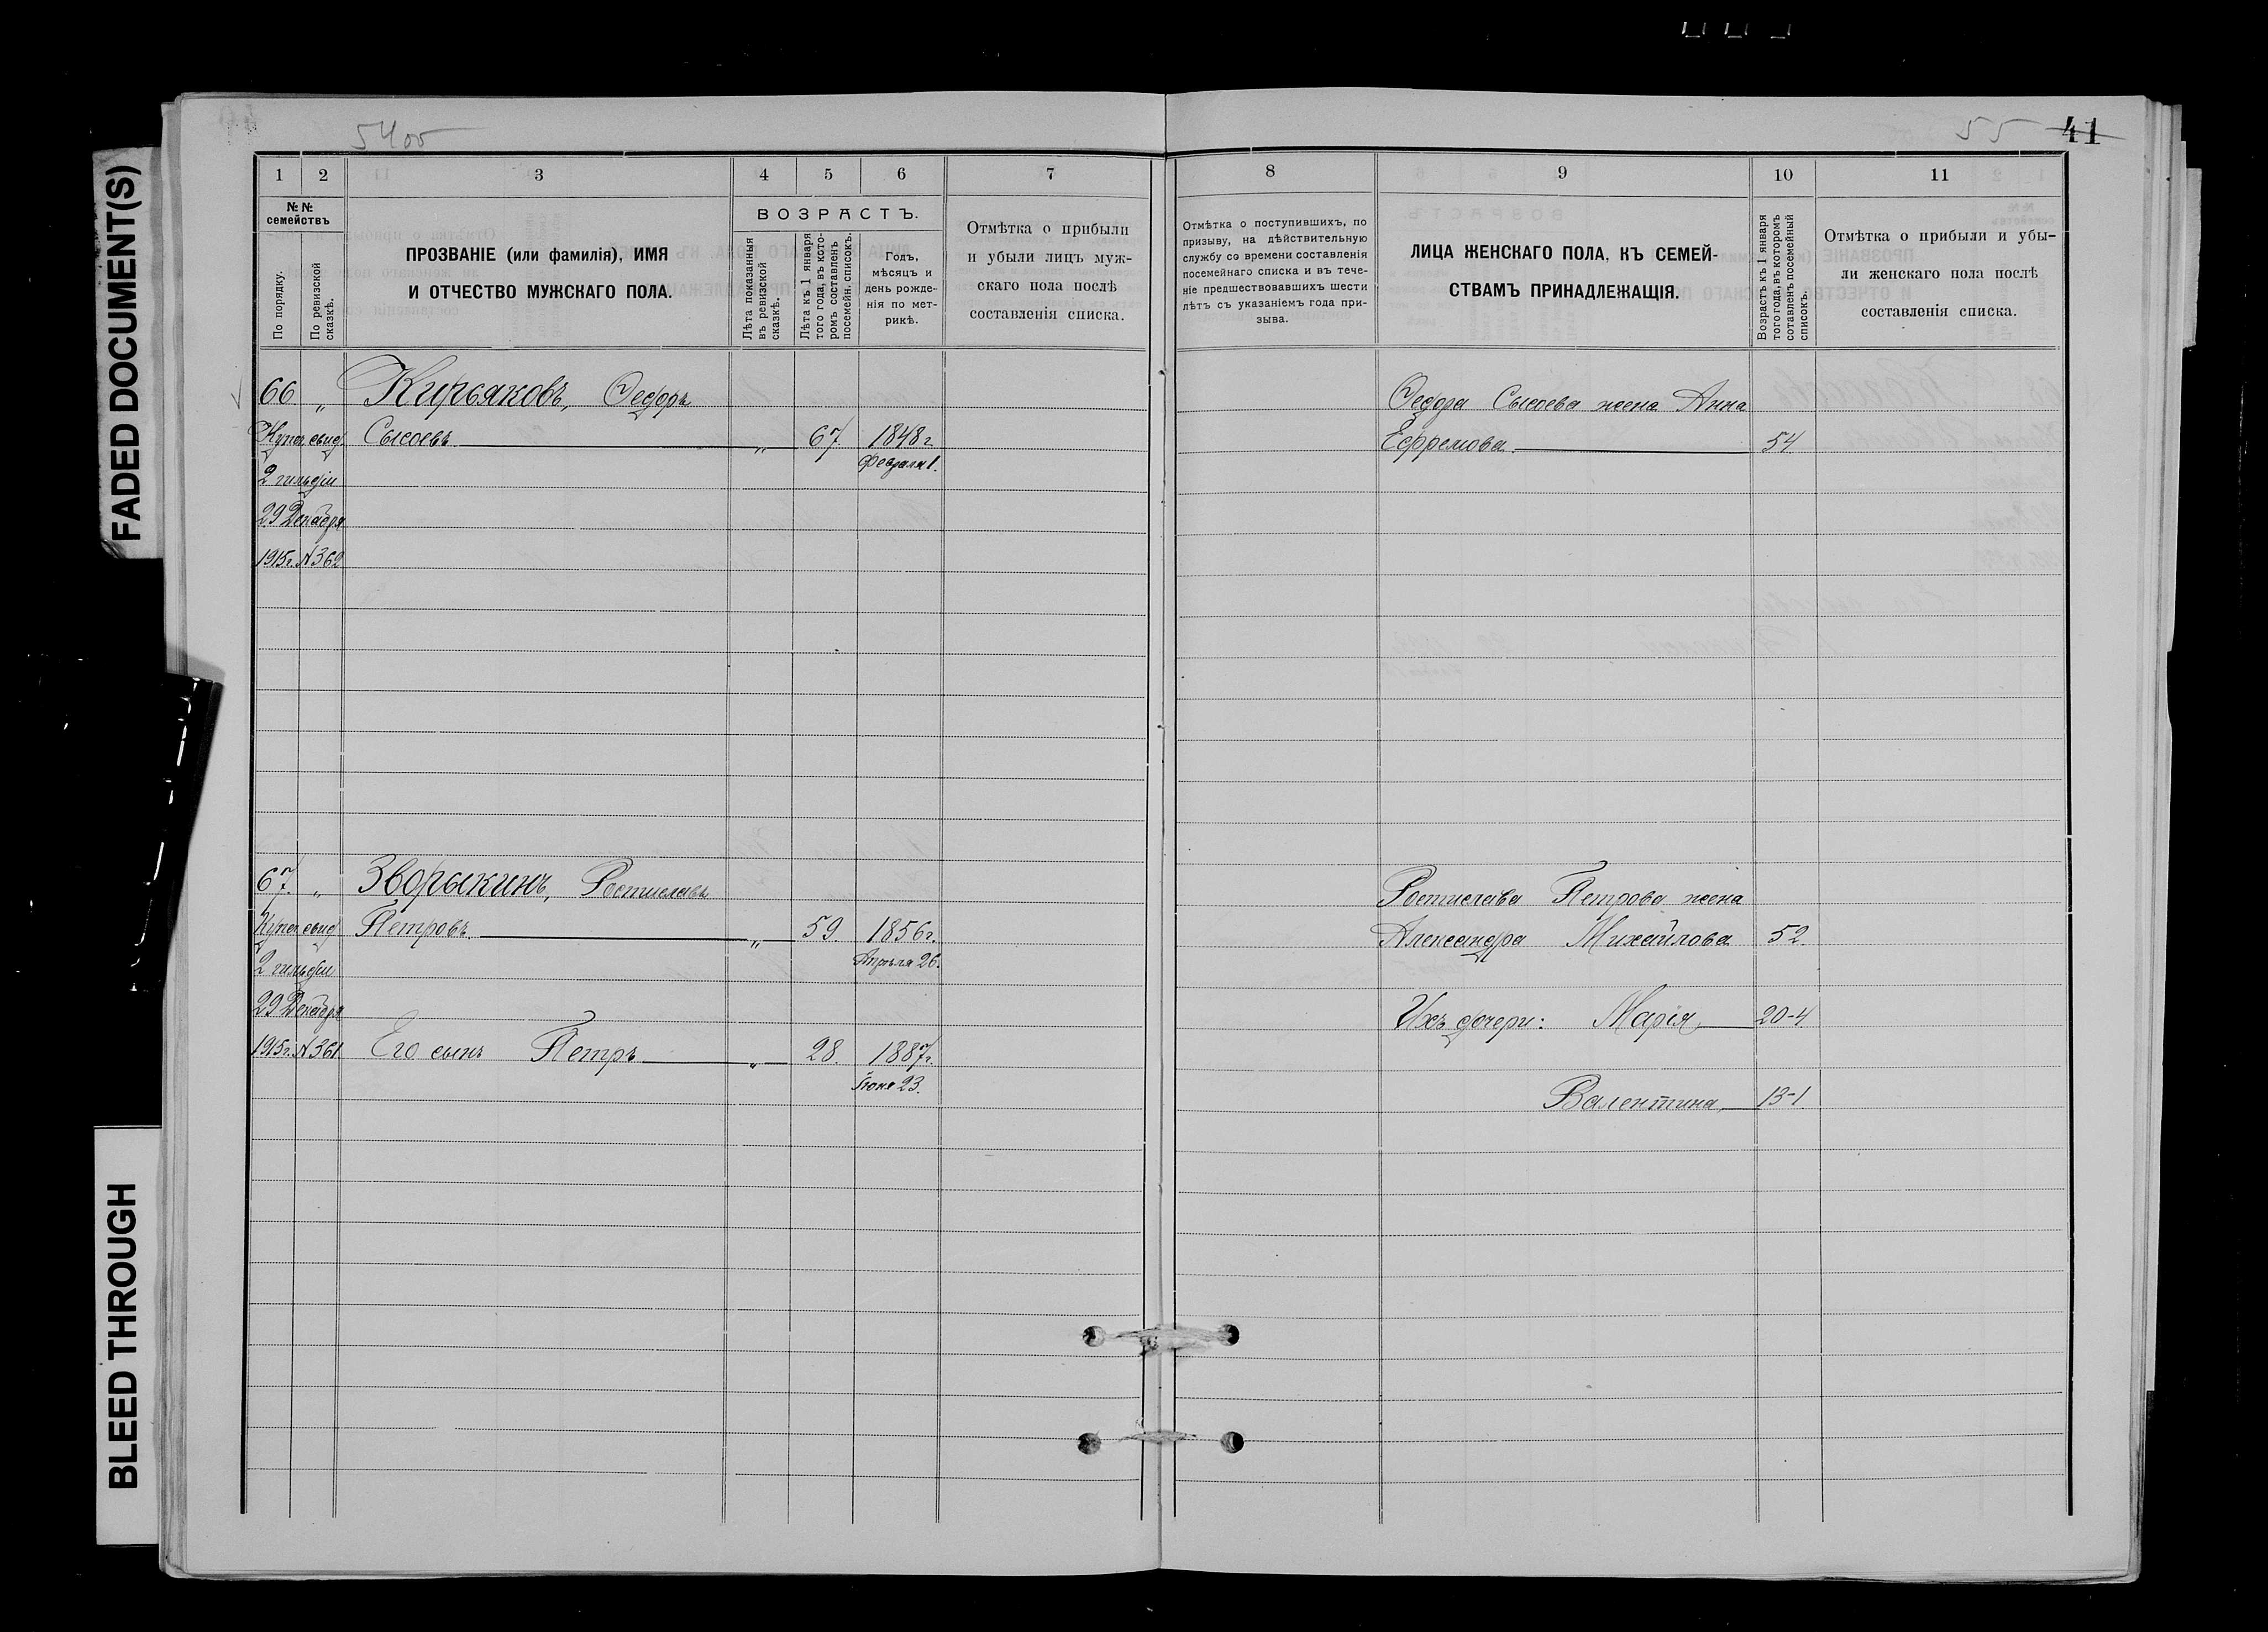 FADED DOCUMENT(S)
BLEED THROUGH
54об
55 41
1 2 3 4 5 6 7
№№ семействъ
По порядку.
По ревизской сказкѣ.
ПРОЗВАНІЕ (или фамилія), ИМЯ
И ОТЧЕСТВО МУЖСКАГО ПОЛА.
ВОЗРАСТЪ.
Лѣта показанныя
въ ревизской
сказкѣ.
Лѣта къ 1 января
того года, въ кото-
ромъ составленъ
посемейн. списокъ.
Годъ,
мѣсяцъ и
день рожде-
нія по мет-
рикѣ.
Отмѣтка о прибыли
и убыли лицъ муж-
скаго пола послѣ
составленія списка.
66 „ Кирьяковъ, Ѳедоръ
Купеч. свид. Сысоевъ „ 67 1848 г.
2 гильдіи Февраля 1.
29 Декабря
1915 г. №362
67. „ Зворыкинъ, Ростиславъ
Купеч. свид. Петровъ „ 59. 1856 г.
2 гильдіи Апрѣля 26.
29 Декабря
1915 г. №361 Его сынъ Петръ „ 28. 1887 г.
Іюня 23.
8 9 10 11
Отмѣтка о поступившихъ, по
призыву, на дѣйствительную
службу со времени составленія
посемейнаго списка и въ тече-
ніе предшествовавшихъ шести
лѣтъ съ указаніемъ года при-
зыва.
ЛИЦА ЖЕНСКАГО ПОЛА, КЪ СЕМЕЙ-
СТВАМЪ ПРИНАДЛЕЖАЩІЯ.
Возрастъ къ 1 января
того года, въ которомъ
сотавленъ посемейный
списокъ.
Отмѣтка о прибыли и убы-
ли женскаго пола послѣ
составленія списка.
Ѳедора Сысоева жена Анна
Ефремова 54
Ростислава Петрова жена
Александра Михайлова 52
Ихъ дочери: Марія 20-4
Валентина 13-1